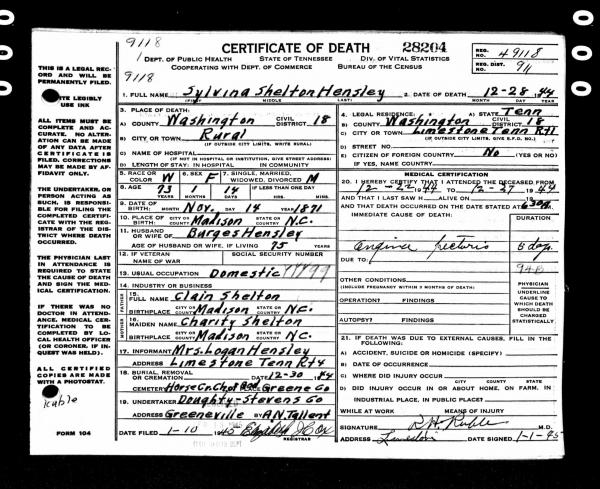 9118
1
9118
CERTIFICATE OF DEATH
28204
REG. NO. 49118
REG. DIST. 911
DEPT. OF PUBLIC HEALTH STATE OF TENNESSEE DIV. OF VITAL STATISTICS
COOPERATING WITH DEPT. OF COMMERCE BUREAU OF THE CENSUS
THIS IS A LEGAL RECORD AND WILL BE PERMANENTLY FILED.
TE LEGIBLY
USE INK
ALL ITEMS MUST BE COMPLETE AND ACCURATE. NO ALTERATION CAN BE MADE OF ANY DATA AFTER CERTIFICATE IS FILED. CORRECTIONS MAY BE MADE BY AFFIDAVIT ONLY.
THE UNDERTAKER, OR PERSON ACTING AS SUCH, IS RESPONSIBLE FOR FILING THE COMPLETED CERTIFICATE WITH THE REGISTRAR OF THE DISTRICT WHERE DEATH OCCURRED.
THE PHYSICIAN LAST IN ATTENDANCE IS REQUIRED TO STATE THE CAUSE OF DEATH AND SIGN THE MEDICAL CERTIFICATION.
IF THERE WAS NO DOCTOR IN ATTENDANCE. MEDICAL CERTIFICATION TO BE COMPLETED BY LOCAL HEALTH OFFICER (OR CORONER. IF INQUEST WAS HELD).
ALL CERTIFIED COPIES ARE MADE WITH A PHOTOSTAT.
FORM 104
1. FULL NAME Sylvina Shelton Hensley
(FIRST) MIDDLE LAST)
2. DATE OF DEATH 12-28 44
MONTH DAY YEAR
3. PLACE OF DEATH:
A) COUNTY Washington CIVIL DISTRICT 18
B) CITY OR TOWN Rural
(IF OUTSIDE CITY LIMITS, WRITE RURAL)
C) NAME OF HOSPITAL
(IF NOT IN HOSPITAL OR INSTITUTION, GIVE STREET ADDRESS)
D) LENGTH OF STAY: IN HOSPITAL IN COMMUNITY
4. LEGAL RESIDENCE: A) STATE Tenn
B) COUNTY Washington CIVIL DISTRICT 18
C) CITY OR TOWN Limestone Tenn Rt1
(IF OUTSIDE CITY LIMITS, GIVE R.F.D. NO.)
D) STREET NO.
E) CITIZEN OF FOREIGN COUNTRY No (YES OR NO)
IF YES, NAME COUNTRY
5. RACE OR COLOR W 6. SEX F 7. SINGLE, MARRIED, WIDOWED, DIVORCED M
8. AGE 73 1 14 (IF LESS THAN ONE DAY)
YEARS MONTHS DAYS HRS. MIN.
9. DATE OF BIRTH: Nov. 14 1871
MONTH DAY YEAR
10. PLACE OF BIRTH: CITY OR COUNTY Madison STATE OR COUNTRY N.C.
11. HUSBAND OR WIFE OF Burges Hensley
AGE OF HUSBAND OR WIFE, IF LIVING 75 YEARS
12. IF VETERAN NAME OF WAR SOCIAL SECURITY NUMBER
13. USUAL OCCUPATION Domestic
14. INDUSTRY OR BUSINESS
FATHER
15. FULL NAME Clain Shelton
BIRTH PLACE CITY OR COUNTY Madison STATE OR COUNTRY N.C.
MOTHER
16. MAIDEN NAME Charity Shelton
BIRTH PLACE CITY OR COUNTY Madison STATE OR COUNTRY N.C.
17. INFORMANT Mrs. Logan Hensley
ADDRESS Limestone Tenn Rt4
18. BURIAL REMOVAL OR CREMATION DATE 12-30 44
CEMETERY Horse Cr. Ch of PLACE Greene Co
19. UNDERTAKER Doughty-Stevens Co
ADDRESS Greeneville BY A.N. Tallent
DATE FILED 1-10 1945 Elizabeth J Cox
REGISTRAR
MEDICAL CERTIFICATION
20. I HEREBY CERTIFY THAT I ATTENDED THE DECEASED FROM
12-22 1944 TO 12-27 1944
AND THAT I LAST SAW H ALIVE ON 19
AND THAT DEATH OCCURRED ON THE DATE STATED AT 6:30 M.
IMMEDIATE CAUSE OF DEATH: DURATION
angina pectoris 5 days
DUE TO: 94B
OTHER CONDITIONS
(INCLUDE PREGNANCY WITHIN 3 MONTHS OF DEATH)
OPERATION? FINDINGS
AUTOPSY? FINDINGS
PHYSICIAN
UNDERLINE CAUSE TO WHICH DEATH SHOULD BE CHARGED STATISTICALLY
21. IF DEATH WAS DUE TO EXTERNAL CAUSES, FILL IN THE FOLLOWING:
A) ACCIDENT, SUICIDE OR HOMICIDE (SPECIFY)
B) DATE OF OCCURRENCE
C) WHERE DID INJURY OCCUR
D) DID INJURY OCCUR IN OR ABOUT HOME, ON FARM, IN INDUSTRIAL PLACE, IN PUBLIC PLACE?
WHILE AT WORK MEANS OF INJURY
SIGNATURE M.D.
ADDRESS Limestone DATE SIGNED 1-1-45